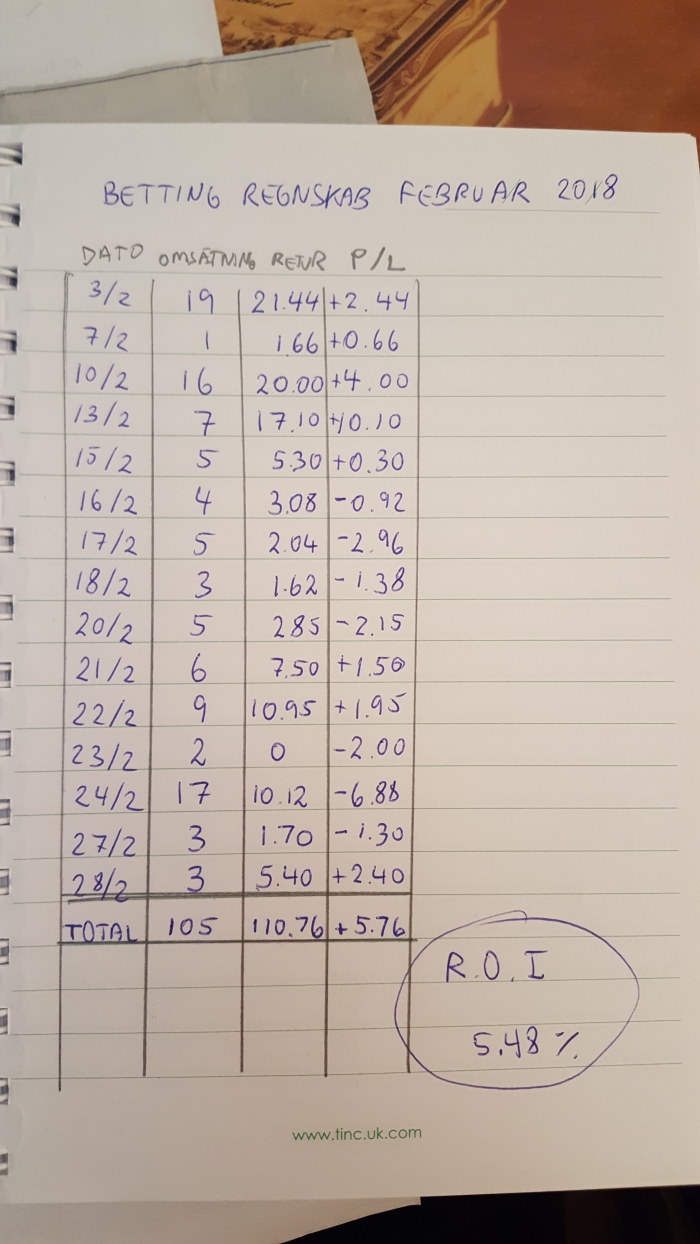 BETTING REGNSKAB FEBRUAR 2018
DATO OMSÄTNING RETUR P/L
3/2 19 21.44 +2.44
7/2 1 1.66 +0.66
10/2 16 20.00 +4.00
13/2 7 17.10 +10.10
15/2 5 5.30 +0.30
16/2 4 3.08 -0.92
17/2 5 2.04 -2.96
18/2 3 1.62 -1.38
20/2 5 285 -2.15
21/2 6 7.50 +1.50
22/2 9 10.95 +1.95
23/2 2 0 -2.00
24/2 17 10.12 -6.88
27/2 3 1.70 -1.30
28/2 3 5.40 +2.40
TOTAL 105 110.76 +5.76
R.O.I
5.48%
www.tinc.uk.com